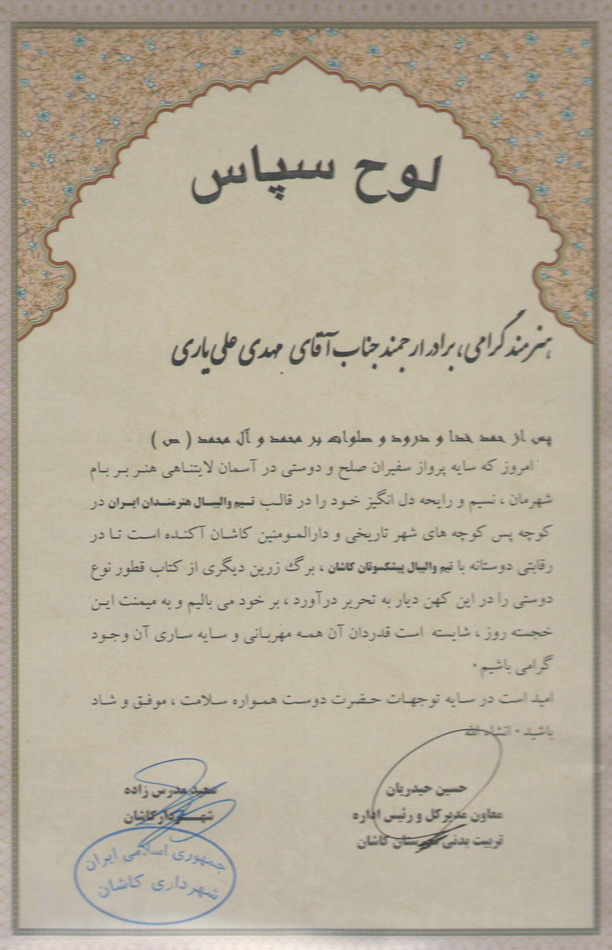 لوح سپاس
هنرمند گرامی، برادر ارجمند جناب آقای مهدی علی یاری
پس از حمد خدا و درود و صلوات بر محمد و آل محمد ( ص )
امروز که سایه پرواز سفیران صلح و دوستی در آسمان لایتناهی هنر بر بام
شهرمان ، نسیم و رایحه دل انگیز خود را در قالب تیم والیبال هنرمندان ایران در
کوچه پس کوچه های شهر تاریخی و دارالمومنین کاشان آکنده است تا در
رقابتی دوستانه با تیم والیبال پیشکسوتان کاشان ، برگ زرین دیگری از کتاب قطور نوع
دوستی را در این کهن دیار به تحریر درآورد ، بر خود می بالیم و به میمنت این
خجسته روز ، شایسته است قدردان آن همه مهربانی و سایه ساری آن وجود
گرامی باشیم .
امید است در سایه توجهات حضرت دوست همواره سلامت ، موفق و شاد
باشید . انشاء الله
حسین حیدریان
معاون مدیرکل و رئیس اداره
تربیت بدنی شهرستان کاشان
سعید مدرس زاده
شهردار کاشان
جمهوری اسلامی ایران
شهرداری کاشان